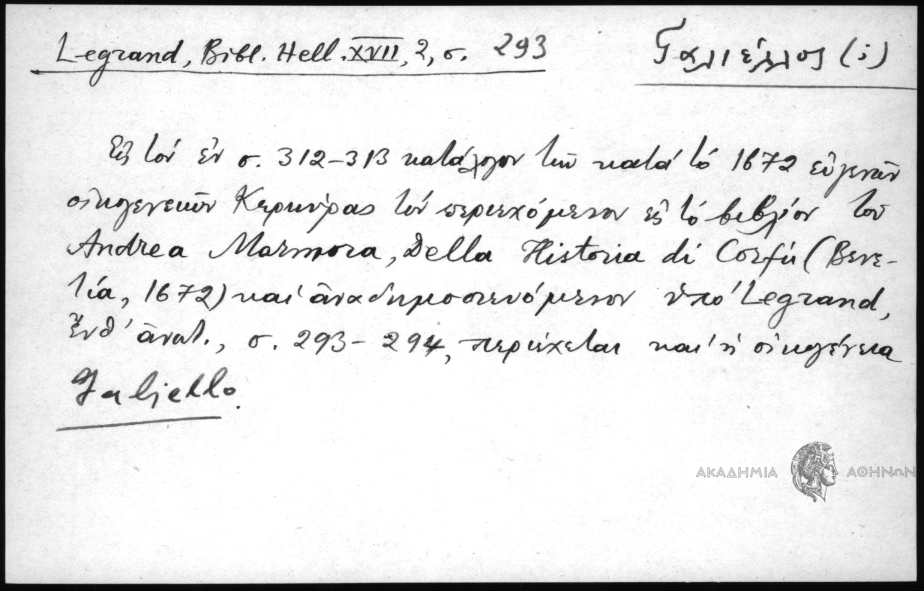 Legrand, Bibl. Hell. XVII, 2, σ. 293
Γαλιέλλος (ι)
Εἰς τὸν ἐν σ. 312-313 κατάλογον τῶν κατὰ τὸ 1672 εὐγενῶν
οἰκογενειῶν Κερκύρας τὸν περιεχόμενον εἰς τὸ βιβλίον τοῦ
Andrea Marmora, Della Historia di Corfú (Βενε-
τία, 1672) καὶ ἀναδημοσιευόμενον ὑπὸ Legrand,
ἔνθ' ἀνωτ., σ. 293-294, περιέχεται καὶ ἡ οἰκογένεια
Galiello.
ΑΚΑΔΗΜΙΑ ΑΘΗΝΩΝ